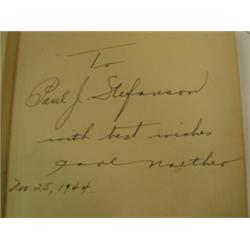 To
Paul J. Stefanson
with best wishes
Carl Naether
Nov. 25, 1944.